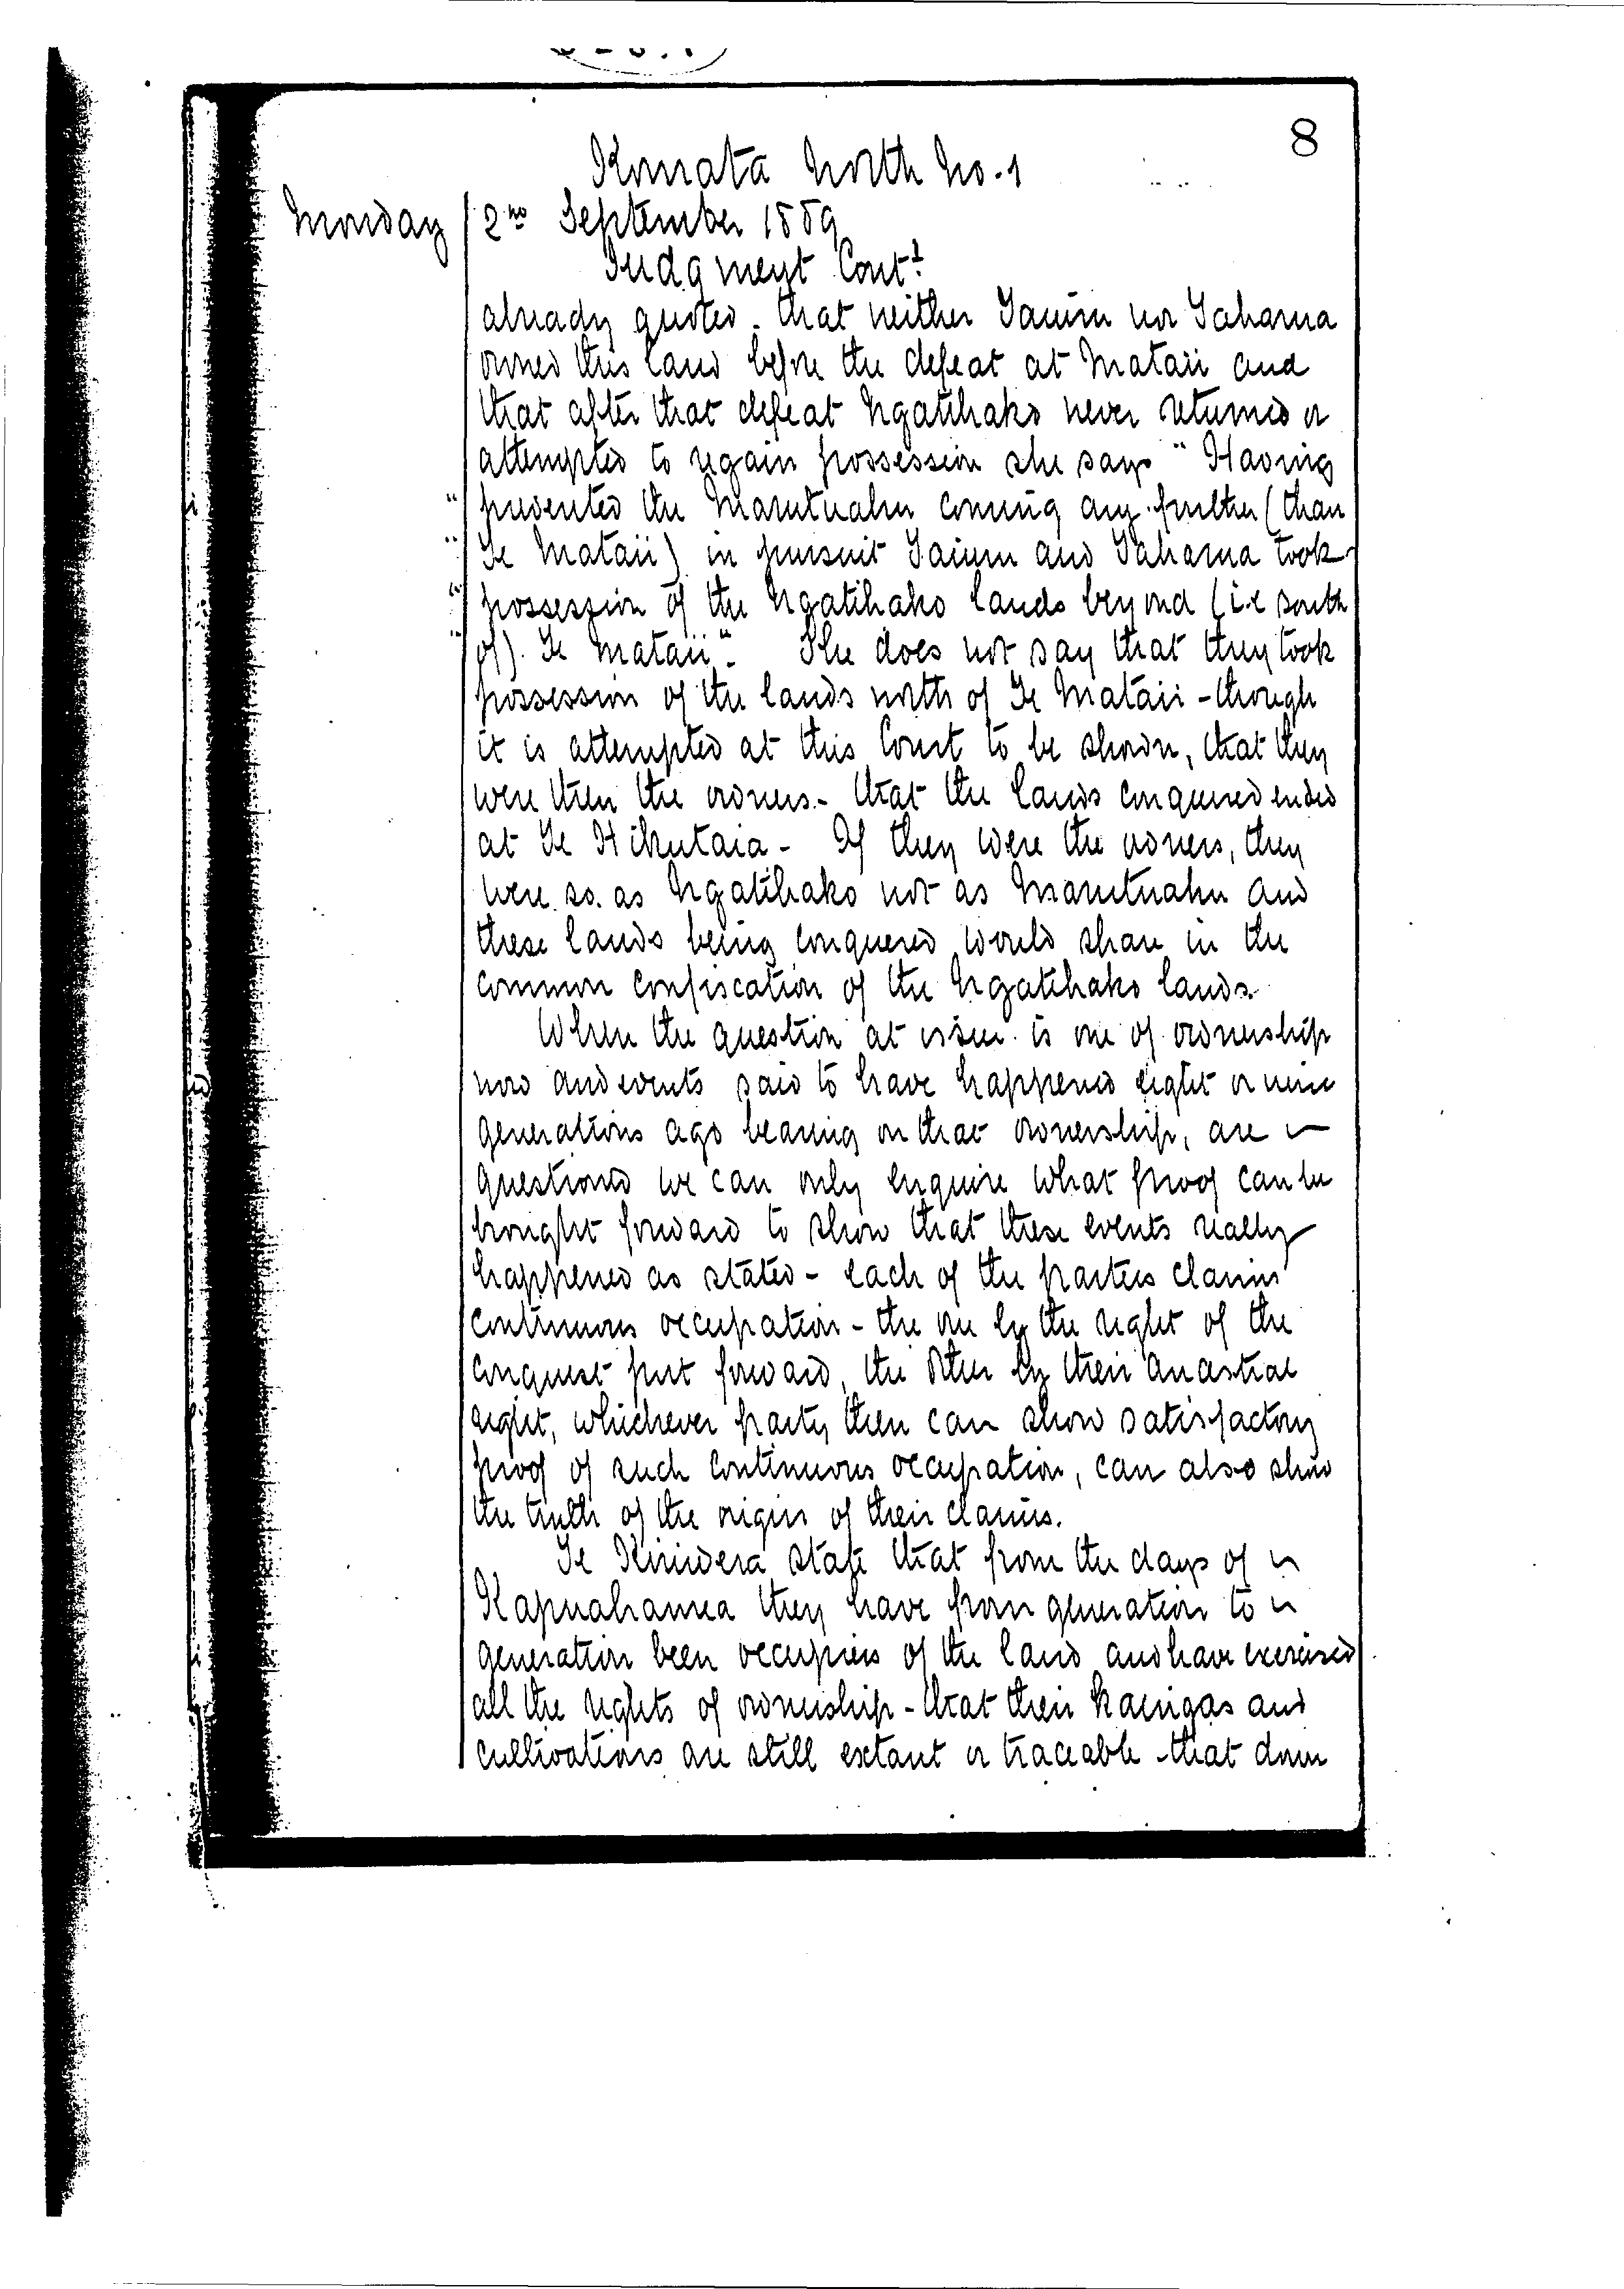 8
Komata North No. 1
Monday 2nd September 1889
Judgment Contd
already quoted. that neither Taiuru nor Taharua
owned this land before the defeat at Mataii and
that after that defeat Ngatihako never returned or
attempted to regain possession she says " Having
" prevented the Marutuahu coming any further (than
" Te Mataii) in pursuit Taiuru and Taharua took
" possession of the Ngatihako lands beyond (i.e south
" of). Te Mataii". She does not say that they took
possession of the lands north of Te Mataii - though
it is attempted at this Court to be shown, that they
were then the owners - that the lands conquered ended
at Te Hikutaia - If they were the owners, they
were so. as Ngatihako not as Marutuahu and
these lands being conquered would share in the
common confiscation of the Ngatihako lands.
When the question at issue is one of ownership
now and events said to have happened eight or nine
generations ago bearing on that ownership, are
questioned we can only enquire what proof can be
brought forward to show that these events really
happened as stated - each of the parties claims
continuous occupation - the one by the right of the
conquest put forward, the other by their ancestral
right, whichever party then can show satisfactory
proof of such continuous occupation, can also show
the truth of the origin of their claims.
Te Kiriwera state that from the days of
Kapuahanua they have from generation to
generation been occupiers of the land and have exercised
all the rights of ownership - that their kaingas and
cultivations are still extant or traceable - that down